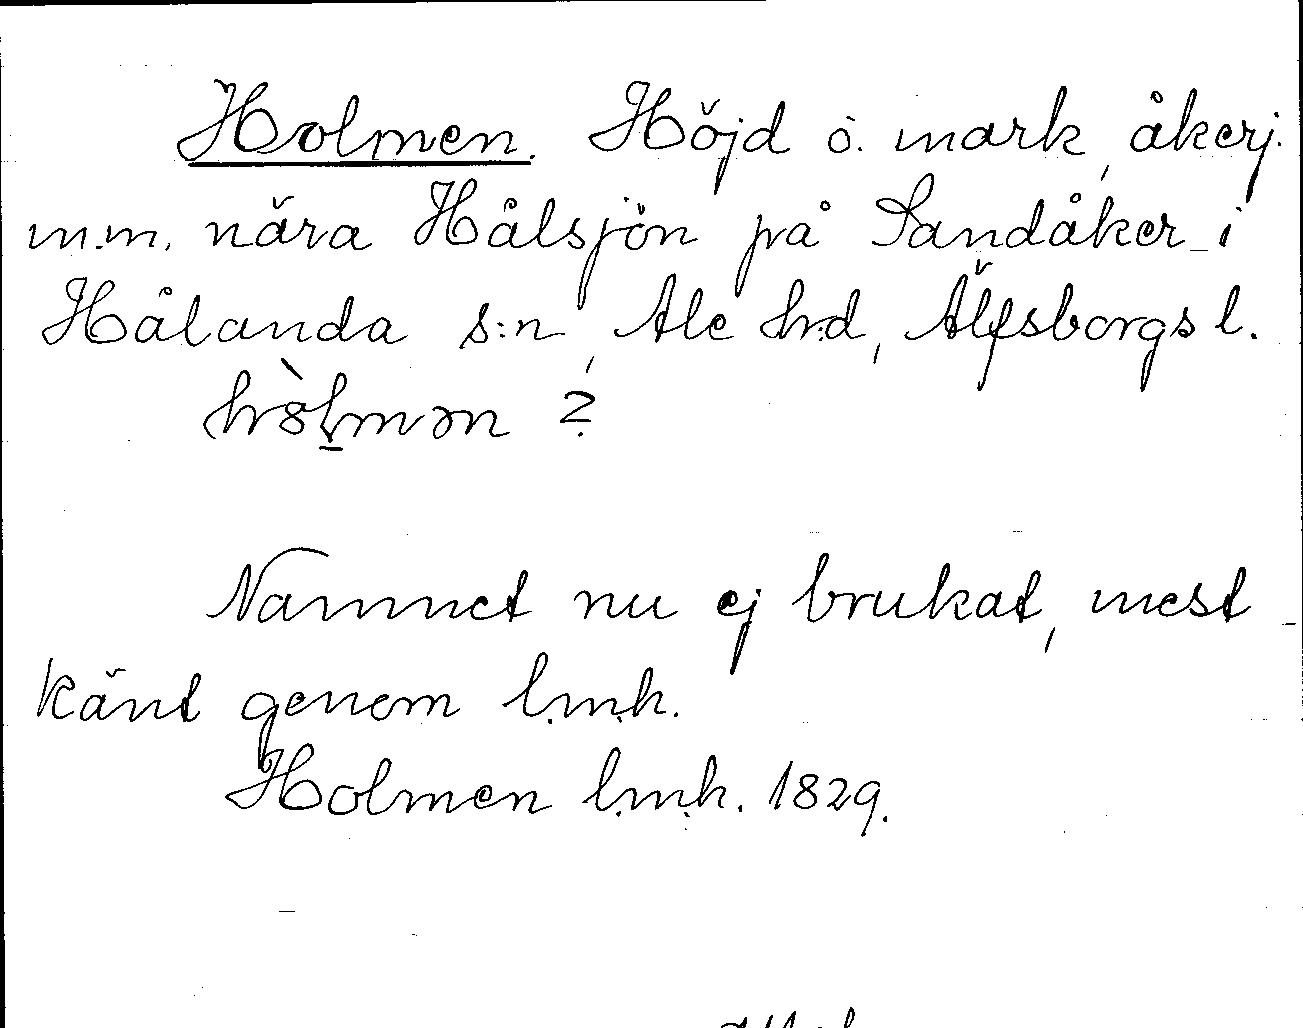 Holmen. Höjd o. mark, åkerj.
m.m. nära Hålsjön på Sandåker i
Hålanda s:n, Ale h:d, Älfsborgs l.
hòlmən ?
Namnet nu ej brukat, mest
känt genom l.m.k.
Holmen l.m.k. 1829.